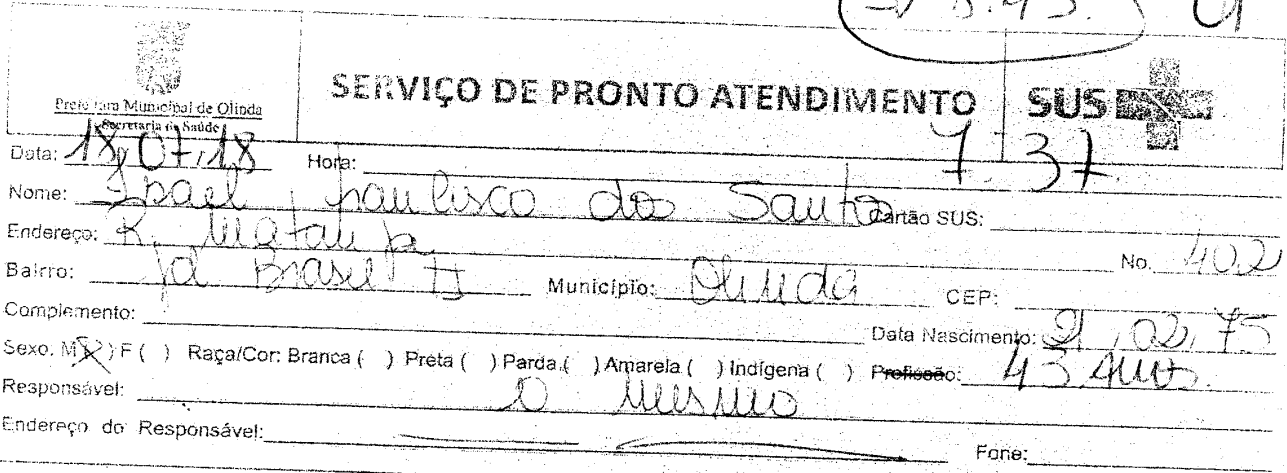 Prefeitura Municipal de Olinda
Secretaria de Saúde
SERVIÇO DE PRONTO ATENDIMENTO
SUS
Data: 18/07/18 Hora: 7:37
Nome: dos Santos Cartão SUS:
Endereço: R. No. 402
Bairro: Jd Brasil II Município: Olinda CEP:
Complemento: Data Nascimento: 21/02/75
Sexo: M(X) F ( ) Raça/Cor: Branca ( ) Preta ( ) Parda ( ) Amarela ( ) Indígena ( ) Profissão: 43 Anos.
Responsável: O mesmo
Endereço do Responsável: Fone: